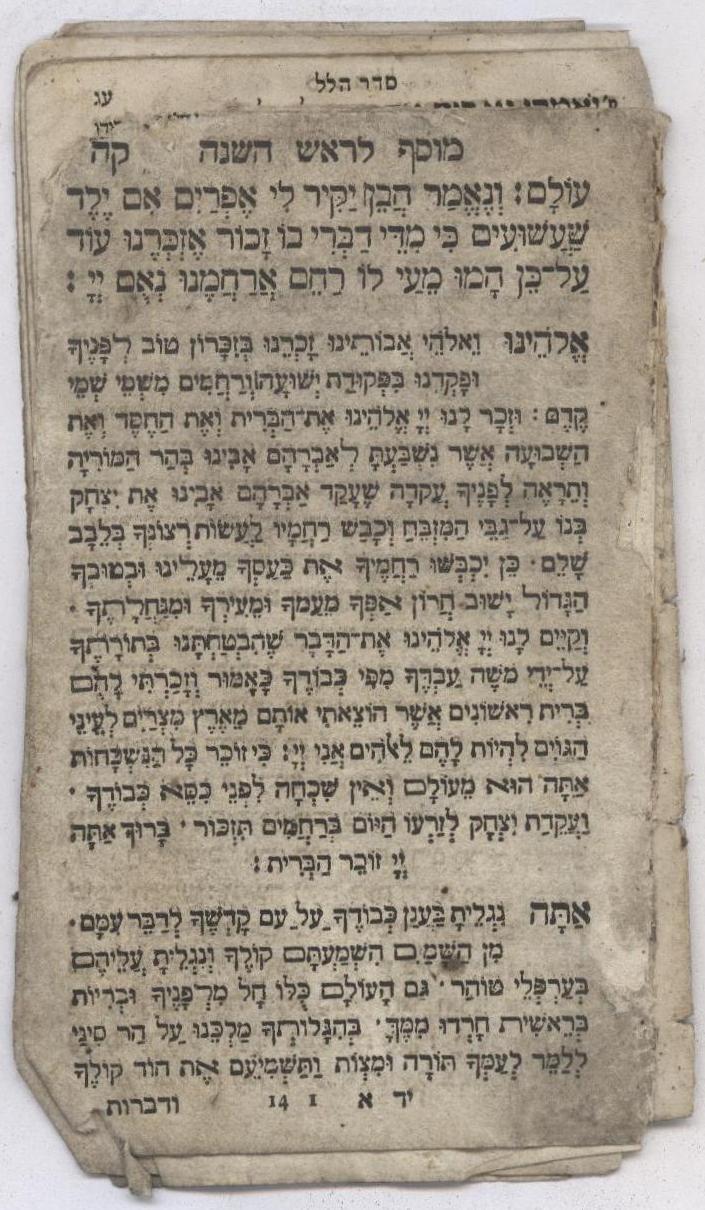 סדר הלל
עג
מוסף לראש השנה קה
עוֹלָם: וְנֶאֱמַר הֲבֵן יַקִּיר לִי אֶפְרַיִם אִם יֶלֶד
שַׁעֲשׁוּעִים כִּי מִדֵּי דַבְּרִי בוֹ זָכוֹר אֶזְכְּרֶנּוּ עוֹד
עַל־כֵּן הָמוּ מֵעַי לוֹ רַחֵם אֲרַחֲמֶנּוּ נְאֻם יְיָ:
אֱלֹהֵינוּ וֵאלֹהֵי אֲבוֹתֵינוּ זָכְרֵנוּ בְּזִכָּרוֹן טוֹב לְפָנֶיךָ
וּפָקְדֵנוּ בִּפְקוּדַת יְשׁוּעָה וְרַחֲמִים מִשְּׁמֵי שְׁמֵי
קֶדֶם: וּזְכָר לָנוּ יְיָ אֱלֹהֵינוּ אֶת־הַבְּרִית וְאֶת הַחֶסֶד וְאֶת
הַשְּׁבוּעָה אֲשֶׁר נִשְׁבַּעְתָּ לְאַבְרָהָם אָבִינוּ בְּהַר הַמּוֹרִיָּה
וְתֵרָאֶה לְפָנֶיךָ עֲקֵדָה שֶׁעָקַד אַבְרָהָם אָבִינוּ אֶת יִצְחָק
בְּנוֹ עַל־גַּבֵּי הַמִּזְבֵּחַ וְכָבַשׁ רַחֲמָיו לַעֲשׂוֹת רְצוֹנְךָ בְּלֵבָב
שָׁלֵם. כֵּן יִכְבְּשׁוּ רַחֲמֶיךָ אֶת כַּעַסְךָ מֵעָלֵינוּ וּבְטוּבְךָ
הַגָּדוֹל יָשׁוּב חֲרוֹן אַפְּךָ מֵעַמְּךָ וּמֵעִירְךָ וּמִנַּחֲלָתֶךָ.
וְקַיֵּים לָנוּ יְיָ אֱלֹהֵינוּ אֶת־הַדָּבָר שֶׁהִבְטַחְתָּנוּ בְּתוֹרָתֶךָ
עַל־יְדֵי מֹשֶׁה עַבְדֶּךָ מִפִּי כְבוֹדֶךָ כָּאָמוּר וְזָכַרְתִּי לָהֶם
בְּרִית רִאשׁוֹנִים אֲשֶׁר הוֹצֵאתִי אוֹתָם מֵאֶרֶץ מִצְרַיִם לְעֵינֵי
הַגּוֹיִם לִהְיוֹת לָהֶם לֵאלֹהִים אֲנִי יְיָ: כִּי זוֹכֵר כָּל הַנִּשְׁכָּחוֹת
אַתָּה הוּא מֵעוֹלָם וְאֵין שִׁכְחָה לִפְנֵי כִסֵּא כְבוֹדֶךָ.
וַעֲקֵדַת יִצְחָק לְזַרְעוֹ הַיּוֹם בְּרַחֲמִים תִּזְכּוֹר. בָּרוּךְ אַתָּה
יְיָ זוֹכֵר הַבְּרִית:
אַתָּה נִגְלֵיתָ בַּעֲנַן כְּבוֹדֶךָ עַל עַם קָדְשֶׁךָ לְדַבֵּר עִמָּם.
מִן הַשָּׁמַיִם הִשְׁמַעְתָּם קוֹלֶךָ וְנִגְלֵיתָ עֲלֵיהֶם
בְּעַרְפְּלֵי טוֹהַר. גַּם הָעוֹלָם כֻּלּוֹ חָל מִלְּפָנֶיךָ וּבְרִיּוֹת
בְּרֵאשִׁית חָרְדוּ מִמֶּךָּ. בְּהִגָּלוֹתְךָ מַלְכֵּנוּ עַל הַר סִינַי
לְלַמֵּד לְעַמְּךָ תּוֹרָה וּמִצְוֹת וַתַּשְׁמִיעֵם אֶת הוֹד קוֹלֶךָ
יד א 1 14 ודברות